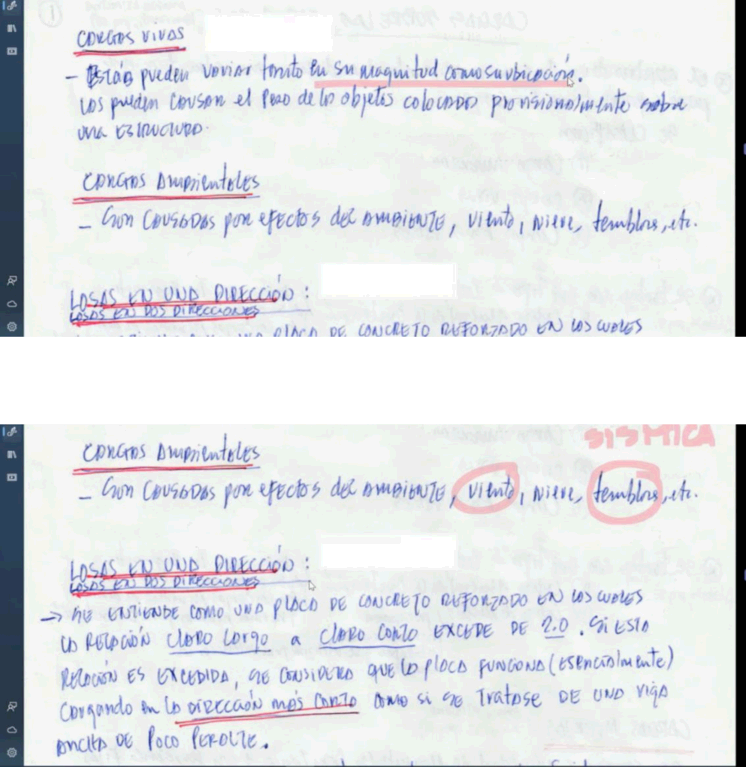 CARGAS VIVAS
- Estás pueden variar tanto en su magnitud como su ubicación.
Las pueden causar el peso de los objetos colocado provisionalmente sobre
una ESTRUCTURA.
CARGAS AMBIENTALES
- Son CAUSADAS por efectos del AMBIENTE, viento, nieve, temblors, etc.
LOSAS EN UNA DIRECCIÓN :
LOSAS EN DOS DIRECCIONES
UNA PLACA DE CONCRETO REFORZADO EN LAS CUALES
SISMICA
CARGAS AMBIENTALES
- Son CAUSADAS por efectos del AMBIENTE, viento, nieve, temblors, etc.
LOSAS EN UNA DIRECCIÓN :
LOSAS EN DOS DIRECCIONES
→ SE ENTIENDE COMO UNA PLACA DE CONCRETO REFORZADO EN LAS CUALES
LA RELACIÓN CLARO LARGO a CLARO CORTO EXCEDE DE 2.0 . Si ESTA
RELACIÓN ES EXCEDIDA, SE CONSIDERA QUE LA PLACA FUNCIONA (ESENCIALMENTE)
Cargando en la DIRECCIÓN MÁS CORTA como si se Tratase DE UNA VIGA
ANCHA DE POCO PERALTE.